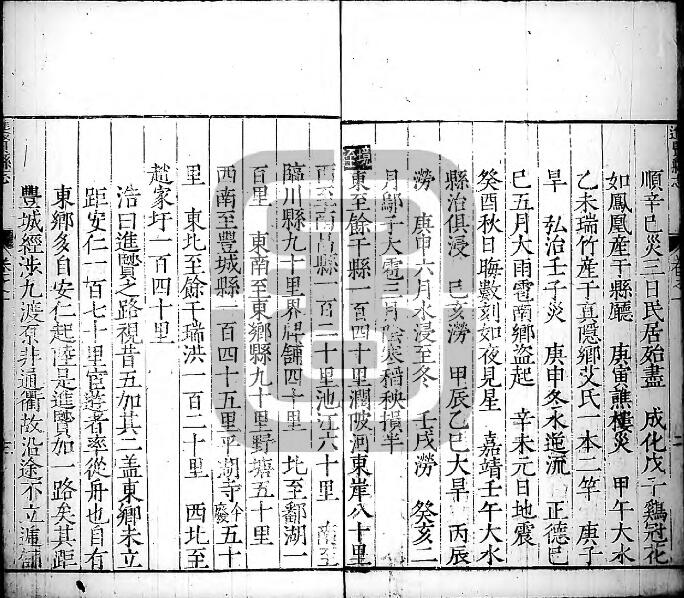 順辛巳災三日民居始盡　成化戊子鷄冠花
如鳳凰產于縣廳　庚寅譙樓災　甲午大水
乙未瑞竹產于真隱鄉艾氏一本二竿　庚子
旱　弘治壬子災　庚申冬水逆流　正德巳
巳五月大雨雹南鄉盜起　辛未元日地震
癸酉秋日晦數刻如夜見星　嘉靖壬午大水
縣治俱浸　巳亥澇　甲辰乙巳大旱　丙辰
澇　庚申六月水浸至冬　壬戌澇　癸亥二
月鄔子大雹三月陰寒稻秧損半
境至　東至餘干縣一百四十里潤陂河東岸八十里
西至南昌縣一百二十里池江六十里　南至
臨川縣九十里界牌舖四十里　北至鄱湖一
百里　東南至東鄉縣九十里野塘五十里
西南至豐城縣一百四十五里平湖寺今廢五十
里　東北至餘干瑞洪一百二十里　西北至
趙家圩一百四十里
浩曰進賢之路視昔五加其二盖東鄉未立
距安仁一百七十里宦遊者率從舟也自有
東鄉多自安仁起陸是進賢加一路矣其距
豐城經涉九渡泵井通衢故沿途不立濂舖
進賢縣志
卷之一